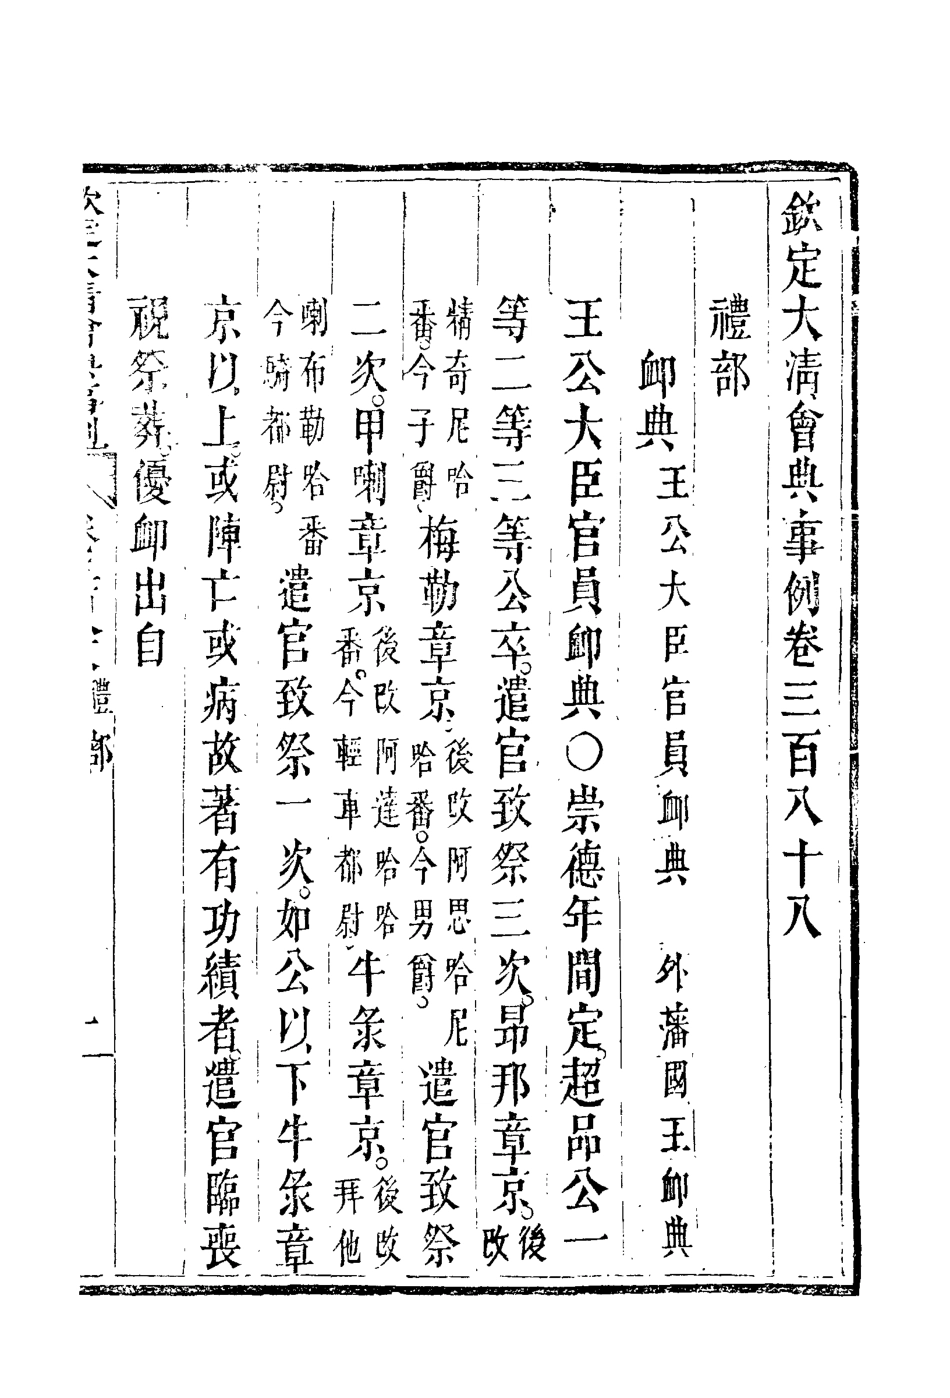 欽定大清會典事例卷三百八十八
禮部
卹典王公大臣官員卹典 外藩國王卹典
王公大臣官員卹典〇崇德年間定。超品公一
等二等三等公卒。遣官致祭三次。昂邦章京。後改
精奇尼哈番。今子爵。梅勒章京。後改阿思哈尼哈番。今男爵。遣官致祭
二次。甲喇章京後改阿達哈哈番。今輕車都尉。牛彔章京。後改拜他
喇布勒哈番今騎都尉。遣官致祭一次。如公以下牛彔章
京以上。或陣亡或病故著有功績者。遣官臨喪
視祭葬。優卹出自
欽定大清會典事例 禮部 一